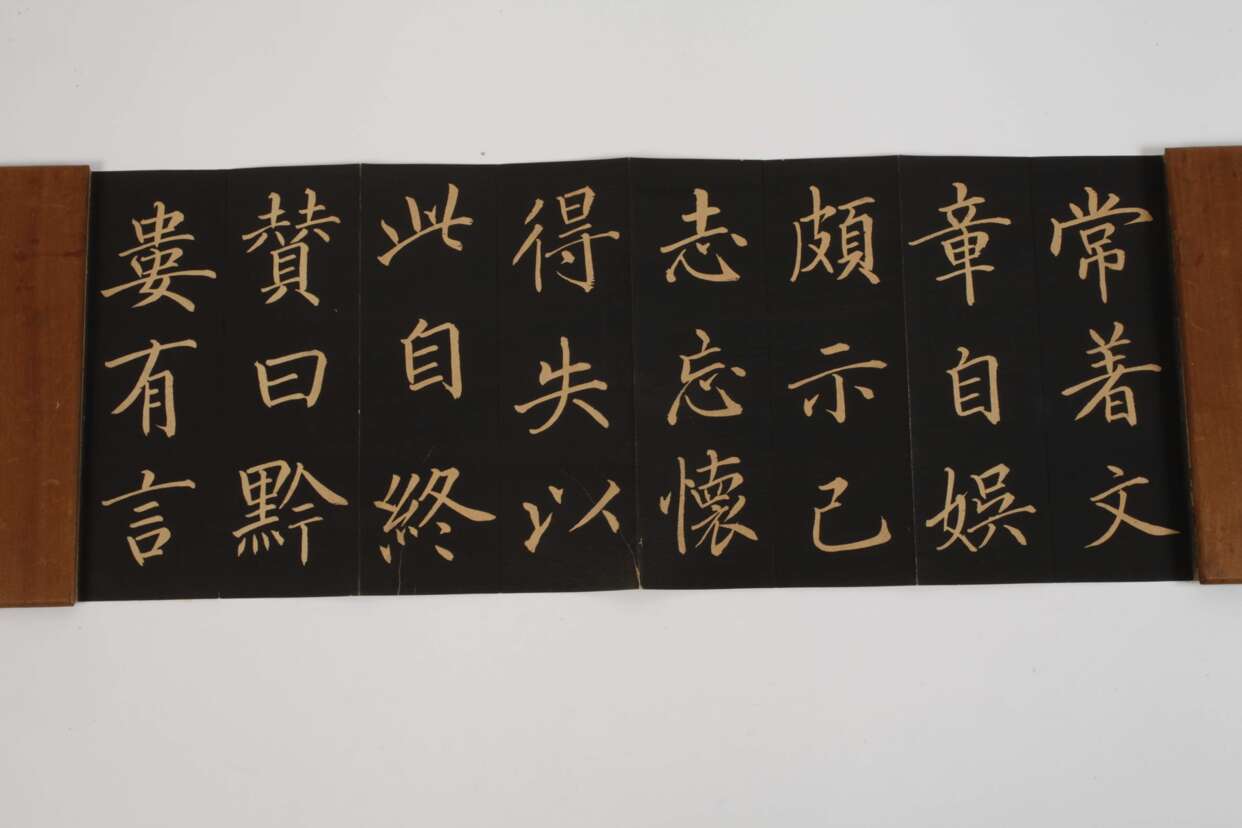 常著文
章自娛
頗示己
志忘懷
得失以
此自終
賛曰黔
婁有言